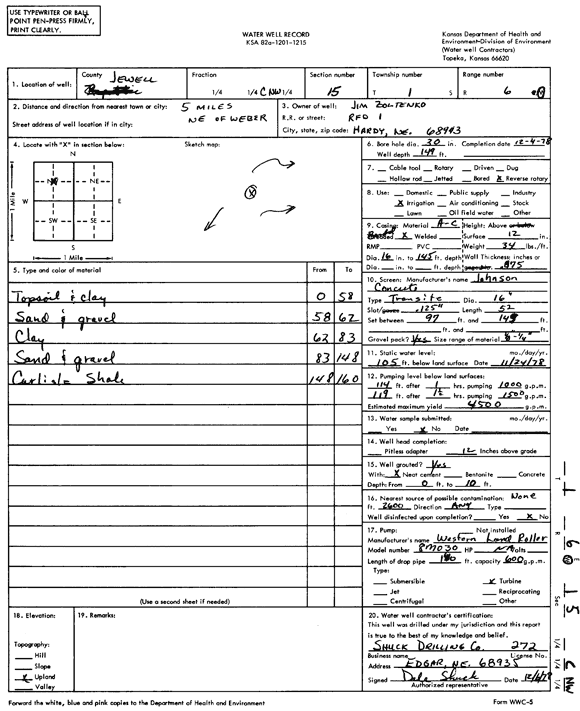 USE TYPEWRITER OR BALL
POINT PEN-PRESS FIRMLY,
PRINT CLEARLY.
WATER WELL RECORD
KSA 82a-1201-1215
Kansas Department of Health and
Environment-Division of Environment
(Water well Contractors)
Topeka, Kansas 66620
1. Location of well: County JEWELL Fraction 1/4 C NW 1/4 Section number 15 Township number T 1 S Range number R 6
2. Distance and direction from nearest town or city: 5 MILES NE OF WEBER
Street address of well location if in city:
3. Owner of well: JIM ZOLTENKO
R.R. or street: RFD 1
City, state, zip code: HARDY, NE. 68943
4. Locate with "X" in section below: Sketch map:
N
NW NE
W E
SW SE
S
1 Mile
1 Mile
6. Bore hole dia. 30 in. Completion date 12-4-78
Well depth 149 ft.
7. Cable tool Rotary Driven Dug
Hollow rod Jetted Bored X Reverse rotary
8. Use: Domestic Public supply Industry
X Irrigation Air conditioning Stock
Lawn Oil field water Other
9. Casing: Material A-C Height: Above or below
X Welded Surface 12 in.
RMP PVC Weight 34 lbs./ft.
Dia. 16 in. to 145 ft. depth Wall Thickness: inches or
Dia. in. to ft. depth .975
5. Type and color of material From To
Topsoil & clay 0 58
Sand & gravel 58 62
Clay 62 83
Sand & gravel 83 148
Carlisle Shale 148 160
(Use a second sheet if needed)
10. Screen: Manufacturer's name Johnson
Concrete
Type Transite Dia. 16"
Slot/gauze .125" Length 52
Set between 97 ft. and 149 ft.
ft. and ft.
Gravel pack? Yes Size range of material
11. Static water level: mo./day/yr.
105 ft. below land surface Date 11/24/78
12. Pumping level below land surfaces:
114 ft. after 1 hrs. pumping 1000 g.p.m.
119 ft. after 12 hrs. pumping 1500 g.p.m.
Estimated maximum yield 4500 g.p.m.
13. Water sample submitted: mo./day/yr.
Yes X No Date
14. Well head completion:
Pitless adapter 12 Inches above grade
15. Well grouted? Yes
With: X Neat cement Bentonite Concrete
Depth: From 0 ft. to 10 ft.
16. Nearest source of possible contamination: None
ft. 2600 Direction ANY Type
Well disinfected upon completion? Yes X No
17. Pump: Not installed
Manufacturer's name Western Land Roller
Model number 8M030 HP NA Volts
Length of drop pipe 130 ft. capacity 600 g.p.m.
Type:
Submersible X Turbine
Jet Reciprocating
Centrifugal Other
18. Elevation:
Topography:
Hill
Slope
X Upland
Valley
19. Remarks:
20. Water well contractor's certification:
This well was drilled under my jurisdiction and this report
is true to the best of my knowledge and belief.
SHUCK DRILLING CO. 272
Business name License No.
Address EDGAR, NE. 68935
Signed Dale Shuck Date 12/4/78
Authorized representative
T 1
R 6 E W
Sec 15
1/4 1/4 C NW 1/4
Forward the white, blue and pink copies to the Department of Health and Environment
Form WWC-5